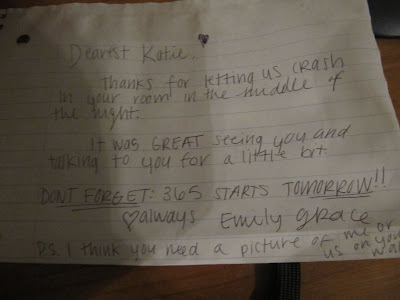 Dearest Katie,
Thanks for letting us crash
in your room in the middle of
the night.
It was GREAT seeing you and
talking to you for a little bit.
DONT FORGET: 365 STARTS TOMORROW!!
♡always Emily Grace
P.S. I think you need a picture of me or
us on your wall